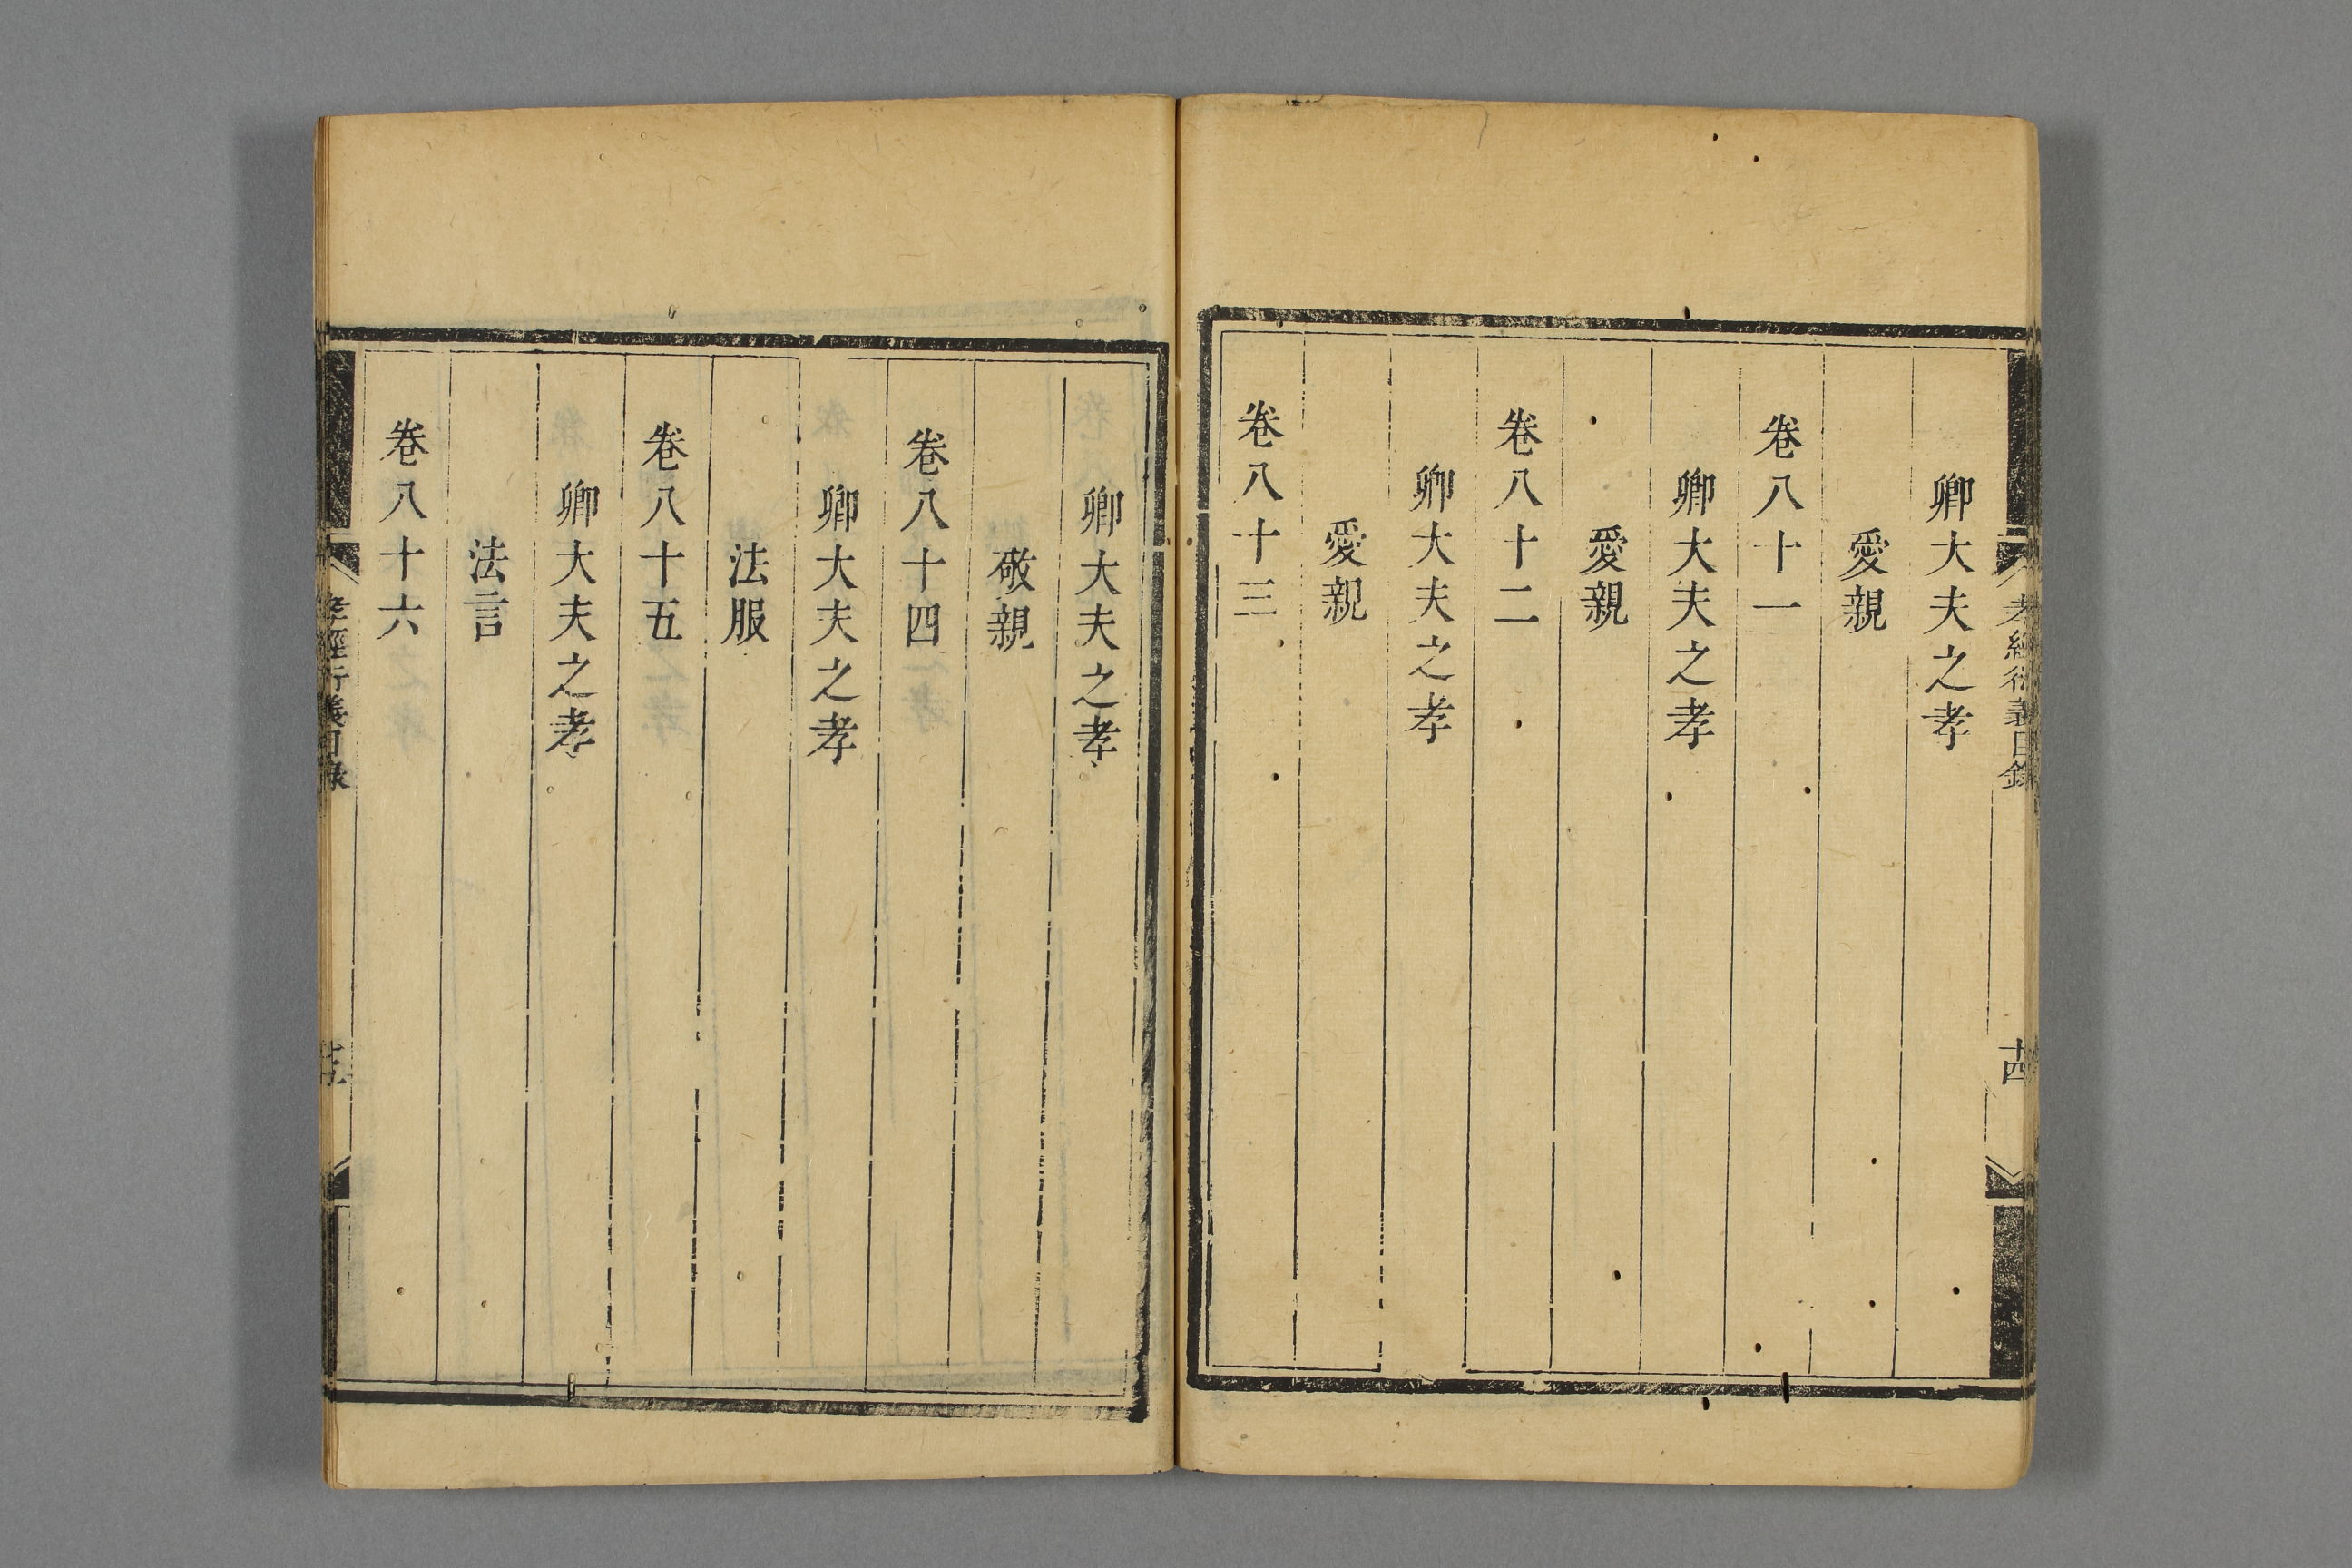 孝經衍義目錄
十四
卿大夫之孝
愛親
卷八十一
卿大夫之孝
愛親
卷八十二
卿大夫之孝
愛親
卷八十三
卿大夫之孝
敬親
卷八十四
卿大夫之孝
法服
卷八十五
卿大夫之孝
法言
卷八十六
孝經衍義目錄